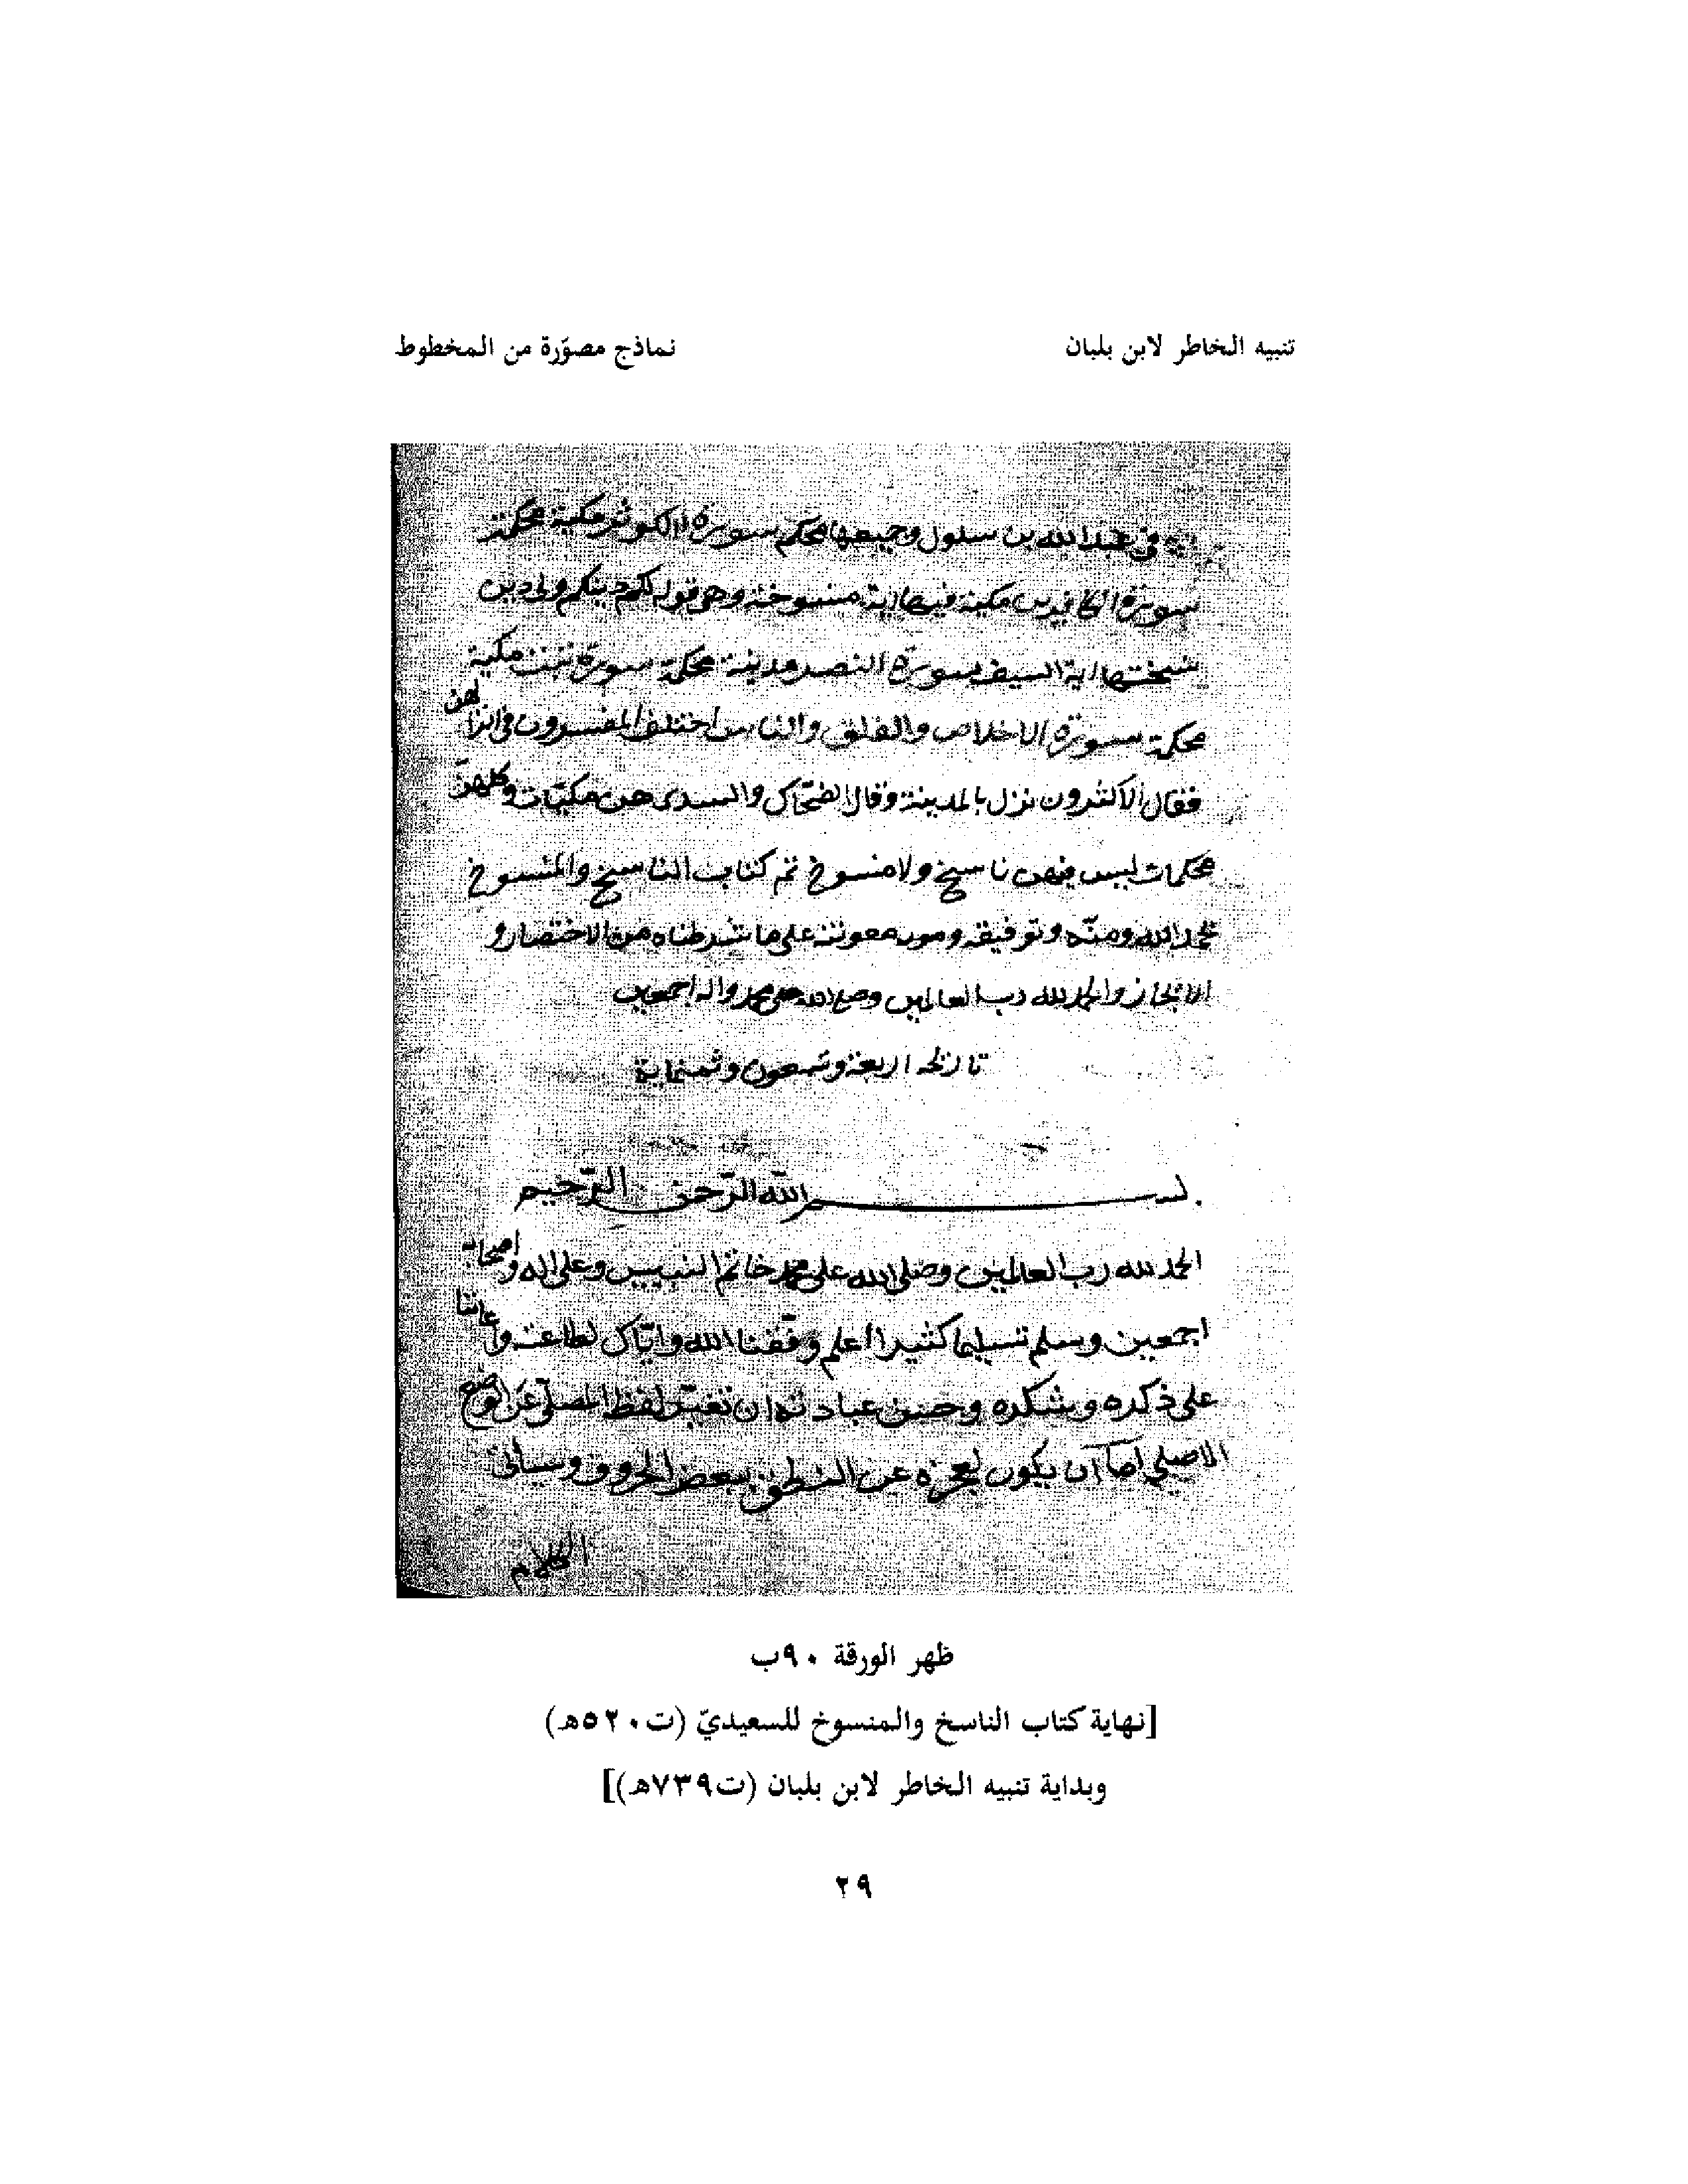 تنبيه الخاطر لابن بلبان
نماذج مصوّرة من المخطوط
في عبد الله بن سلول وجميعها محكم سورة الكوثر مكية محكمة
سورة الكافرين مكية فيها اية منسوخة وهي قوله لكم دينكم ولي دين
نسختها اية السيف سورة النصر مدينة محكمة سورة تبت مكية
محكمة سورة الاخلاص والفلق والناس اختلف المفسرون في انزالهن
فقال الاكثرون نزل بالمدينة وقال الضحّاك والسدى هن مكيّات وكلهنّ
محكمات ليس فيهن ناسخ ولا منسوخ تم كتاب الناسخ والمنسوخ
بحمد الله ومنّه وتوفيقه معونته على ما شرطناه من الاختصار و
الايجاز والحمد لله رب العالمين وصلى الله على محمد واله اجمعين
تاريخه اربعة وتسعون وثمنماية
بسم الله الرّحمن الرّحيم
الحمد لله رب العالمين وصلى الله على محمد خاتم النبيين وعلى اله واصحابه
اجمعين وسلم تسليما كثيرا أعلم وفّقنا الله وايّاك لطاعته واعاننا
على ذكره وشكره وحسن عبادته ان تغيّر لفظ المصلّى عن الوضع
الاصلي اما ان يكون لعجزه عن النطق ببعض الحروف وسيأتى
الكلام
ظهر الورقة ٩٠ب
[نهاية كتاب الناسخ والمنسوخ للسعيديّ (ت٥٢٠هـ)
وبداية تنبيه الخاطر لابن بلبان (ت٧٣٩هـ)]
٢٩